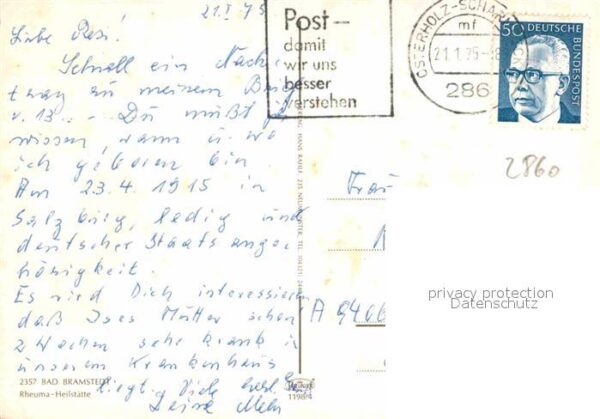 21.I.75
Liebe Resi!
Schnell ein Nach-
trag zu meinem Brief
v. 13. - Du mußt ja
wissen, wann u. wo
ich geboren bin.
Am 23.4.1915 in
Salzburg, ledig und
deutscher Staatsange-
hörigkeit.
Es wird Dich interessieren
daß Mutter schon
2 Wochen sehr krank in
unserem Krankenhaus
liegt. Viele herzl.
Deine
2357 BAD BRAMSTEDT
Rheuma-Heilstätte
Post-
damit
wir uns
besser
verstehen
OSTERHOLZ-SCHARM
mf
21.1.75-18
286
50 DEUTSCHE
BUNDESPOST
2860
HANS RAHLF 235 NEUMÜNSTER, TEL.
Frau
A 9400
privacy protection
Datenschutz
1198/4